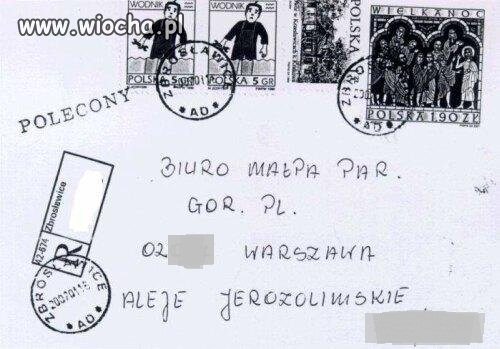 www.wiocha.pl
WODNIK
WODNIK
WIELKANOC
POLSKA 5 GR
POLSKA 5 GR
POLSKA
POLSKA 1,90 ZŁ
ZBROSŁAWICE
AD
AD
POLECONY
BIURO MAŁPA PAR.
GOR. PL.
02 WARSZAWA
ALEJE JEROZOLIMSKIE
42-674 Zbrosławice
R
AD